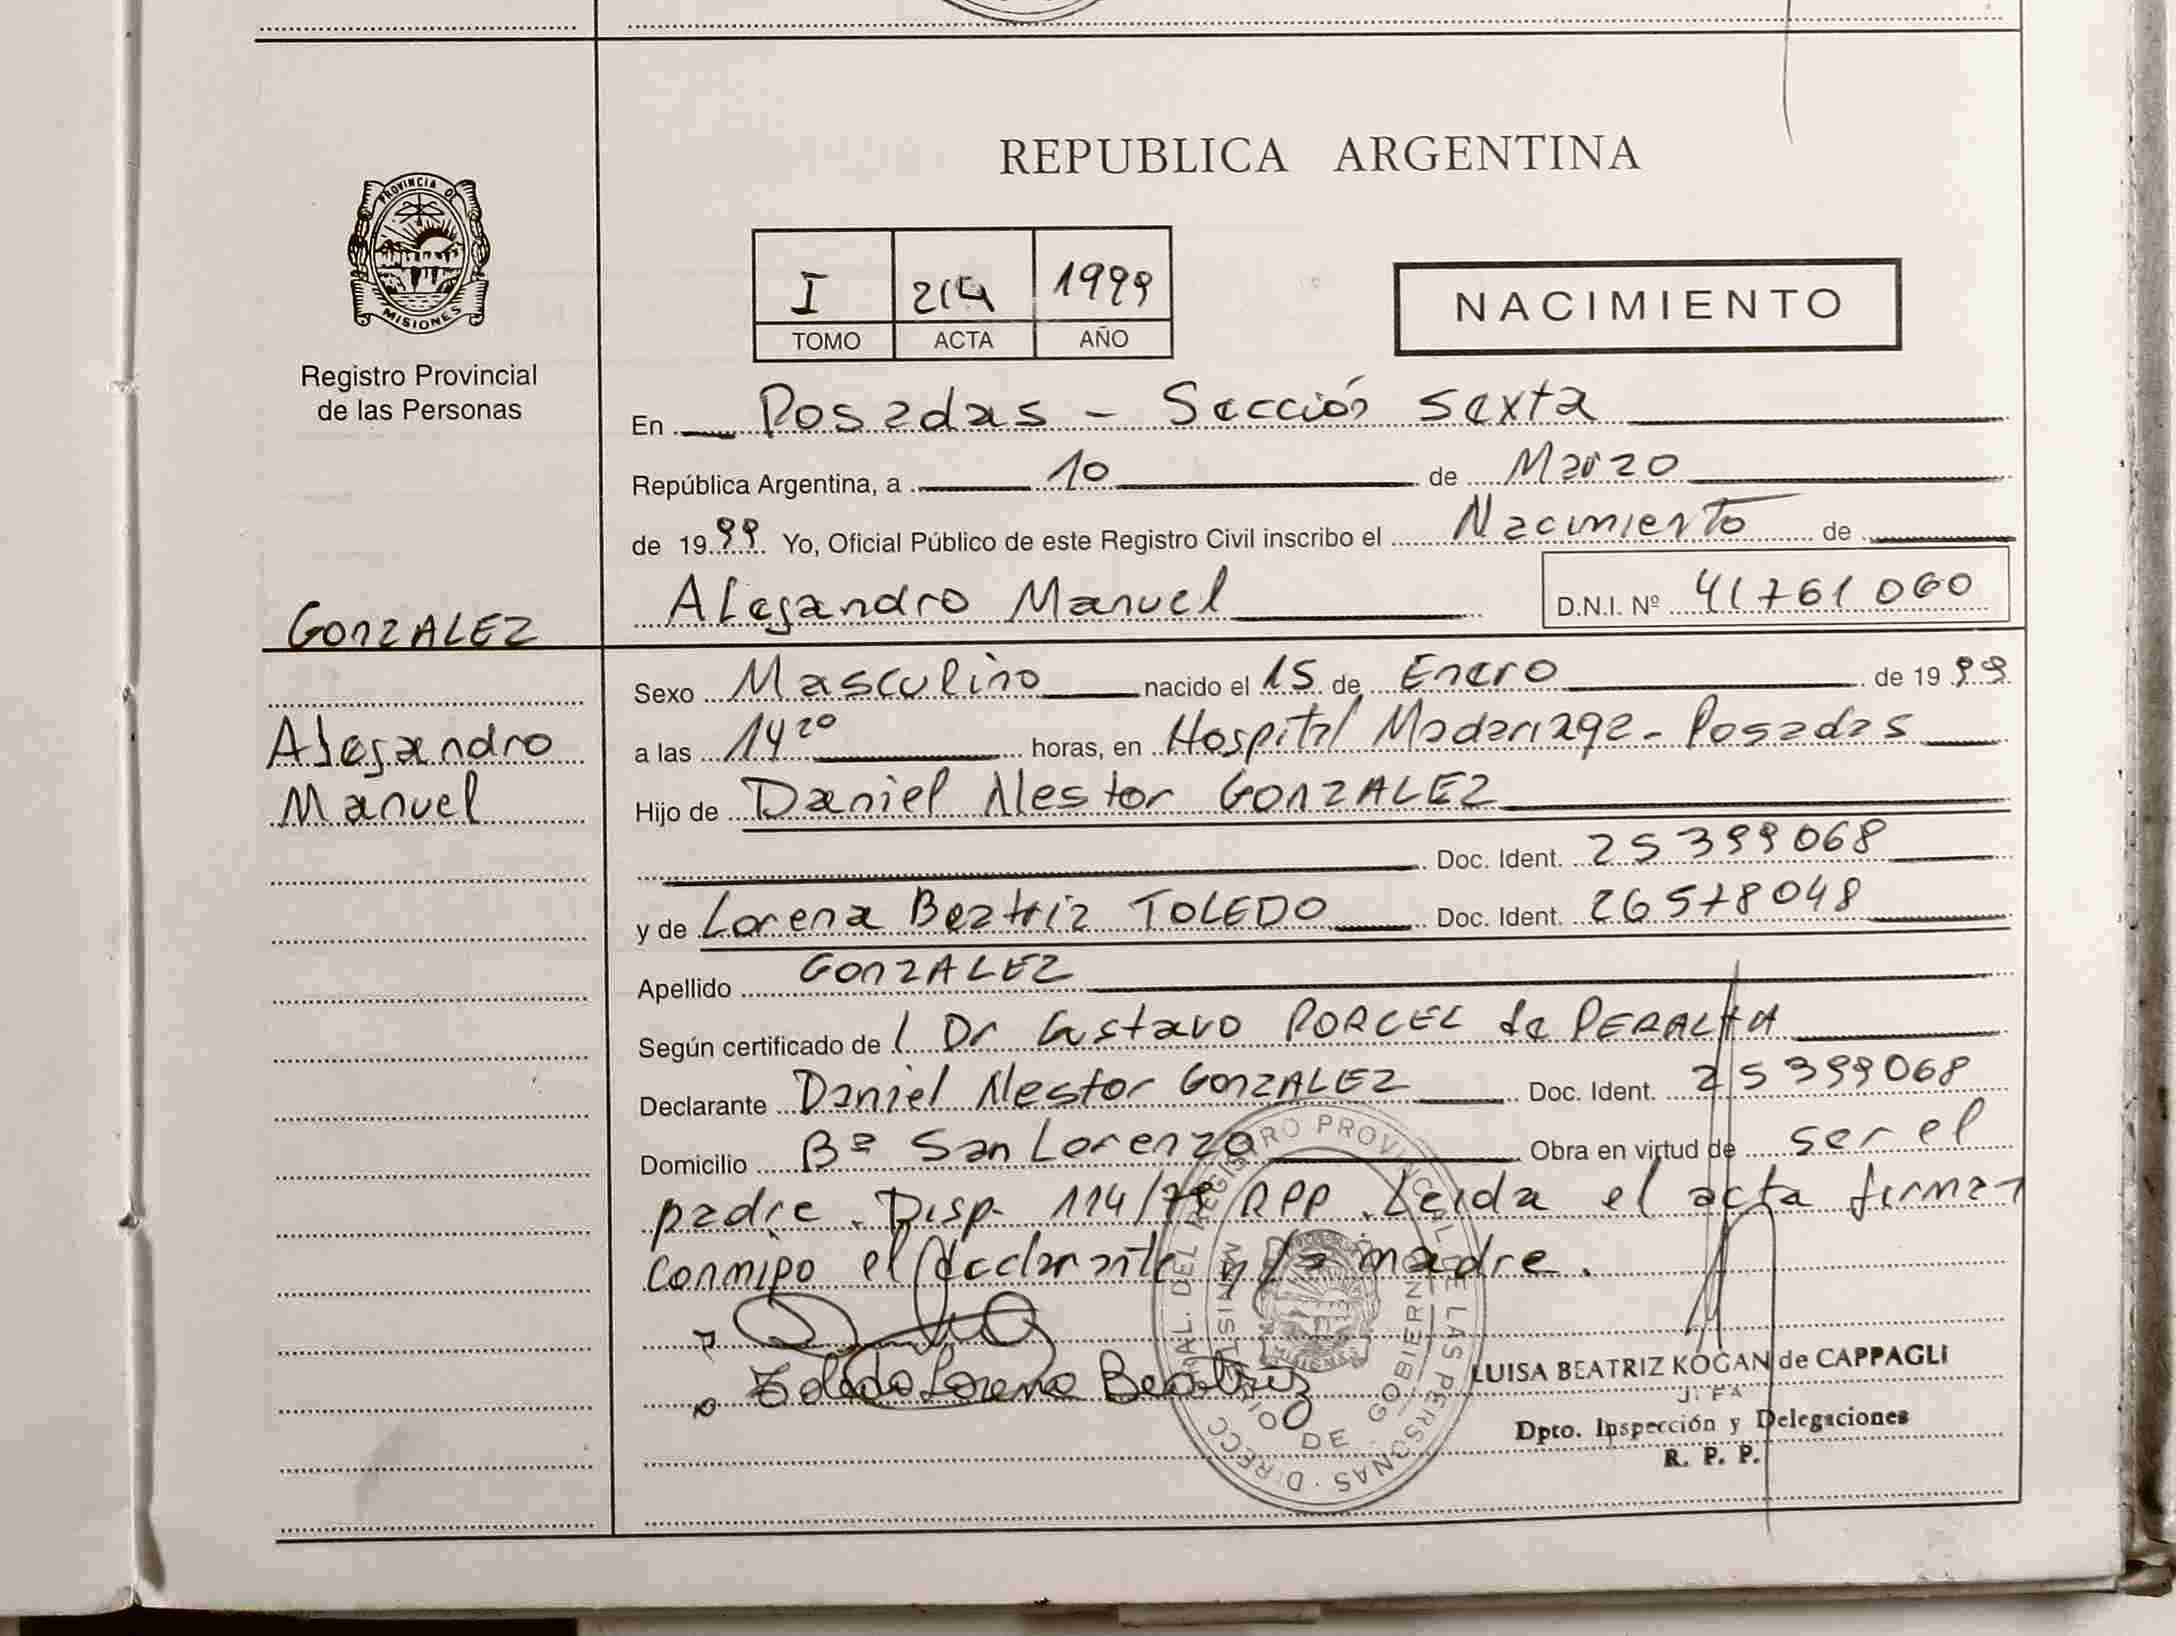 PROVINCIA DE
MISIONES
Registro Provincial
de las Personas
REPUBLICA ARGENTINA
I 214 1999
TOMO ACTA AÑO
NACIMIENTO
En Posadas - Sección sexta
República Argentina, a 10 de Marzo
de 1999 Yo, Oficial Público de este Registro Civil inscribo el Nacimiento de
Alejandro Manuel D.N.I. Nº 41761060
GONZALEZ
Alejandro
Manuel
Sexo Masculino nacido el 15 de Enero de 1999
a las 14 20 horas, en Hospital Madariaga - Posadas
Hijo de Daniel Nestor GONZALEZ
Doc. Ident. 25399068
y de Lorena Beatriz TOLEDO Doc. Ident. 26578048
Apellido GONZALEZ
Según certificado de l Dr Gustavo PORCEL de PERALTA
Declarante Daniel Nestor GONZALEZ Doc. Ident. 25399068
Domicilio Bº San Lorenzo Obra en virtud de ser el
padre. Disp. 114/79 RPP. Leída el acta firman
conmigo el declarante y la madre.
Toledo Lorena Beatriz
DIRECC. GRAL. DEL REGISTRO PROVINCIAL DE LAS PERSONAS
MINISTERIO DE GOBIERNO
LUISA BEATRIZ KOGAN de CAPPAGLI
JEFA
Dpto. Inspección y Delegaciones
R. P. P.